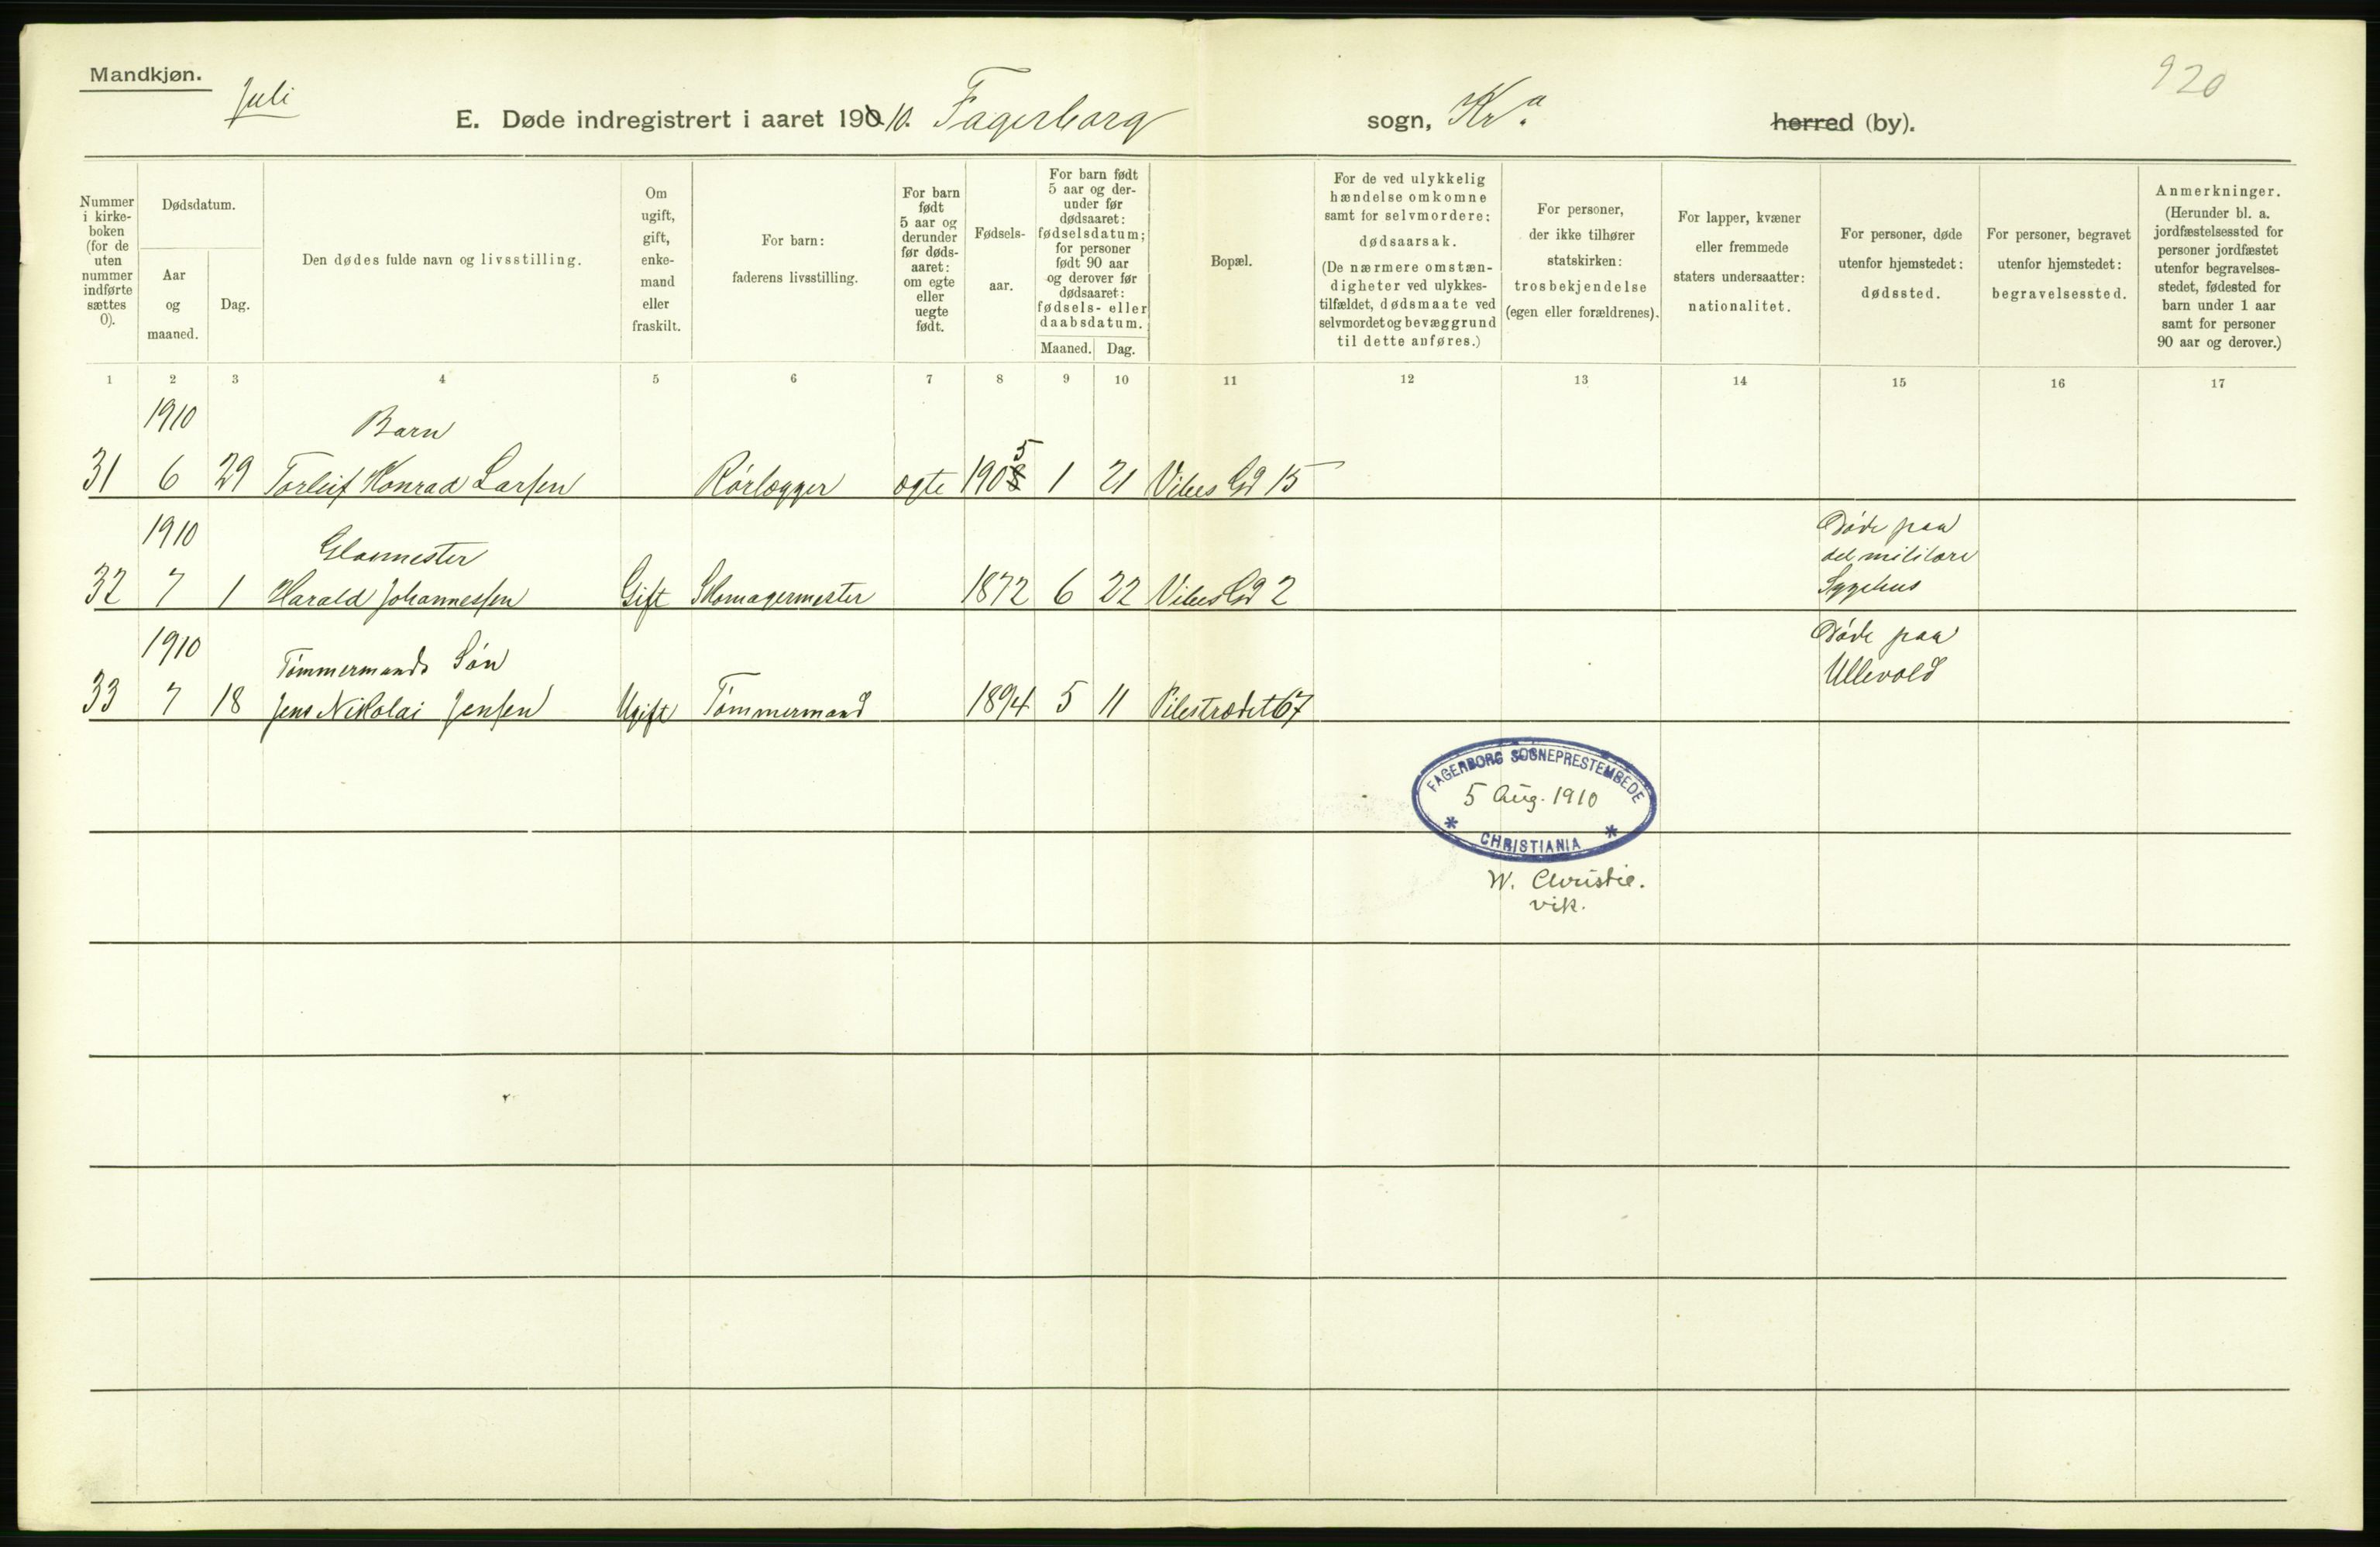 Mandkjøn.
Juli
920
E. Døde indregistrert i aaret 1910. Fagerborg sogn, Kr.a herred (by).
Nummer i kirke-boken (for de uten nummer indførte sættes 0).
Dødsdatum.
Aar og maaned.
Dag.
Den dødes fulde navn og livsstilling.
Om ugift, gift, enke-mand eller fraskilt.
For barn: faderens livsstilling.
For barn født 5 aar og derunder før døds-aaret: om egte eller uegte født.
Fødsels-aar.
For barn født 5 aar og der-under før dødsaaret: fødselsdatum; for personer født 90 aar og derover før dødsaaret: fødsels- eller daabsdatum.
Maaned. Dag.
Bopæl.
For de ved ulykkelig hændelse omkomne samt for selvmordere: dødsaarsak. (De nærmere omstæn-digheter ved ulykkes-tilfældet, dødsmaate ved selvmordet og bevæggrund til dette anføres.)
For personer, der ikke tilhører statskirken: trosbekjendelse (egen eller forældrenes).
For lapper, kvæner eller fremmede staters undersaatter: nationalitet.
For personer, døde utenfor hjemstedet: dødssted.
For personer, begravet utenfor hjemstedet: begravelsessted.
Anmerkninger. (Herunder bl. a. jordfæstelsessted for personer jordfæstet utenfor begravelses-stedet, fødested for barn under 1 aar samt for personer 90 aar og derover.)
1 2 3 4 5 6 7 8 9 10 11 12 13 14 15 16 17
1910 Barn
31 6 29 Torleif Konrad Larsen Rørlægger ægte 1905 1 21 Vibes Gd 15
1910 Døde paa
det militære
32 7 1 Harald Johannessen Gift Skomagermester 1872 6 22 Vibes Gd 2 Sygehus
1910 Tømmermands Søn Døde paa
Ullevold
33 7 18 Jens Nikolai Jensen Ugift Tømmermand 1894 5 11 Pilestrædet 67
FAGERBORG SOGNEPRESTEMBEDE
5 Aug. 1910
* CHRISTIANIA *
W. Christie.
vik.